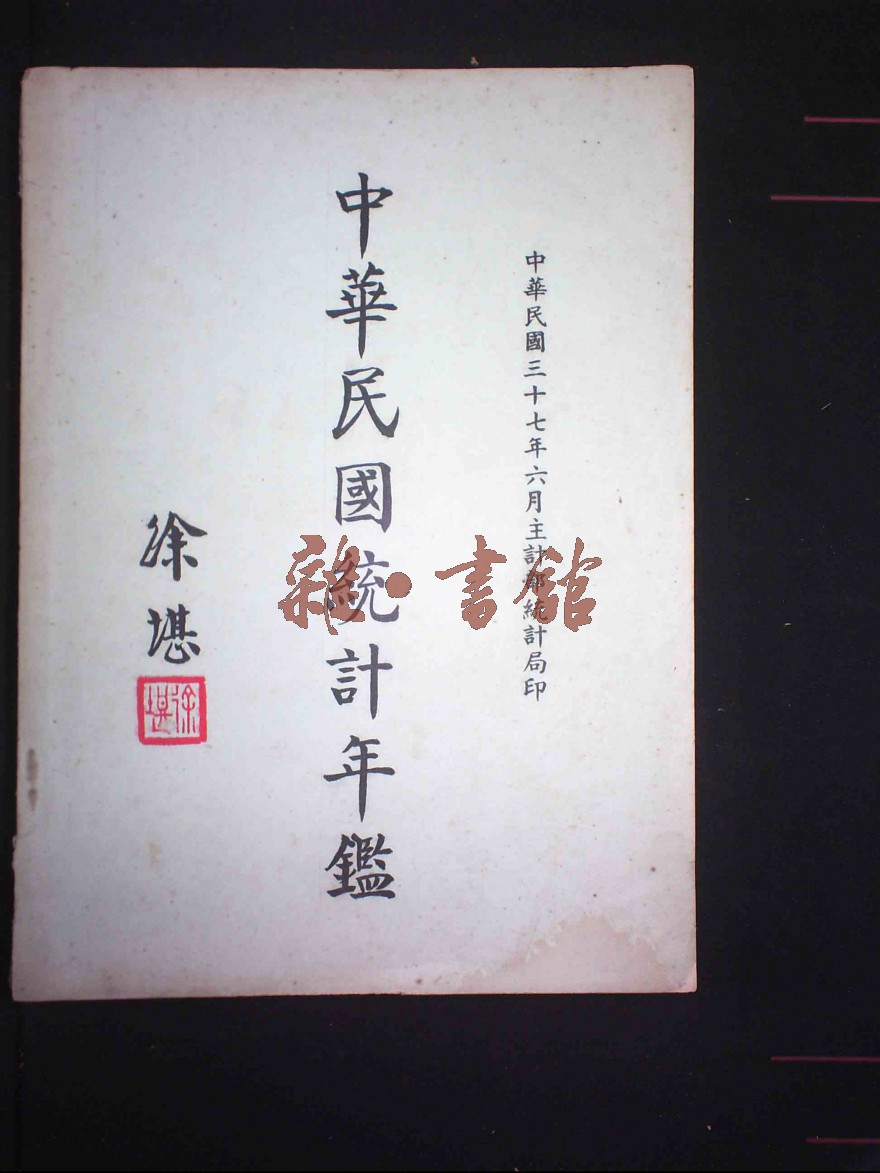 中華民國三十七年六月主計部統計局印
中華民國統計年鑑
徐堪
徐堪
雜·書館